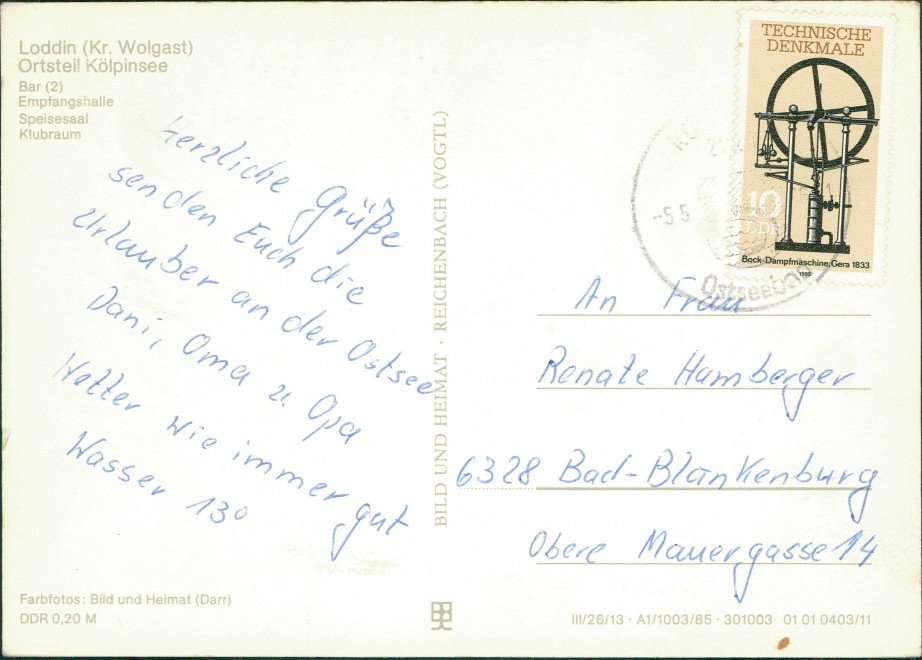 Loddin (Kr. Wolgast)
Ortsteil Kölpinsee
Bar (2)
Empfangshalle
Speisesaal
Klubraum
Herzliche Grüße
senden Euch die
Urlauber an der Ostsee
Dani, Oma u. Opa
Wetter wie immer gut
Wasser 13°
Farbfotos: Bild und Heimat (Darr)
DDR 0,20 M
BILD UND HEIMAT · REICHENBACH (VOGTL)
TECHNISCHE
DENKMALE
10
DDR
Bock-Dampfmaschine, Gera 1833
1985
-5.5
Ostseebad
An Frau
Renate Hamberger
6328 Bad-Blankenburg
Obere Mauergasse 14
III/26/13 · A1/1003/85 · 301003 01 01 0403/11